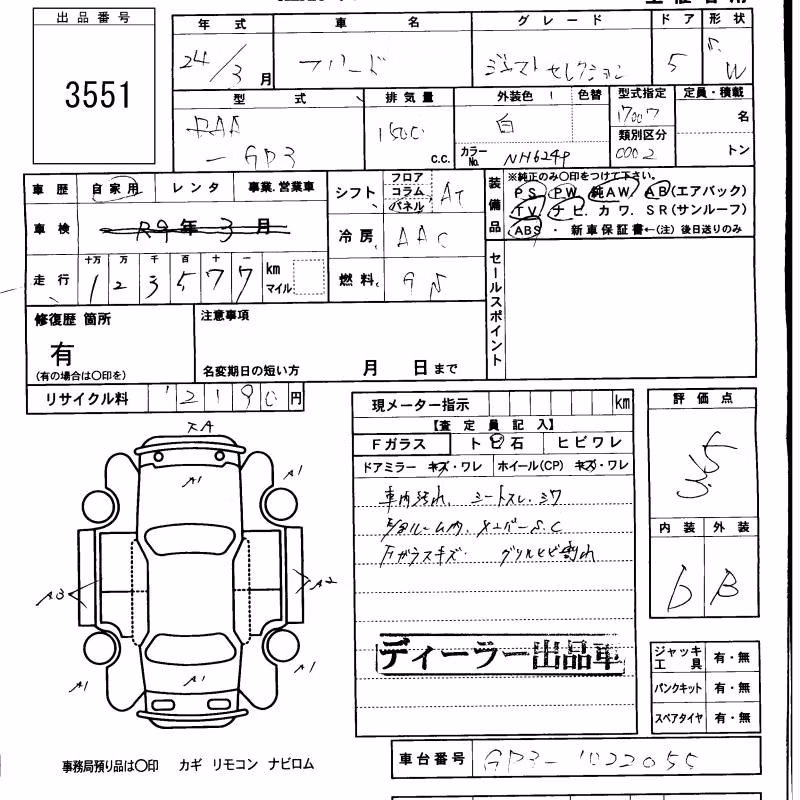 出品番号
3551
年式 車名 グレード ドア 形状
24/3月 フリード ジャストセレクション 5 W
型式 排気量 外装色 色替 型式指定 定員・積載
DAA-GP3 1500 c.c. 白 17007 名
カラーNo. NH624P 類別区分 0002 トン
車歴 自家用 レンタ 事業.営業車
シフト フロア コラム パネル AT
車検 R9年3月
冷房 AAC
走行 十万 万 千 百 十 一
123577 km マイル
燃料
装備品 ※純正のみ○印をつけて下さい。
PS PW 純AW. AB(エアバック)
TV. ナビ. カワ. SR(サンルーフ)
ABS ・ 新車保証書←(注) 後日送りのみ
セールスポイント
修復歴 箇所 注意事項
有
(有の場合は○印を) 名変期日の短い方 月 日まで
リサイクル料 12190円
現メーター指示 km
【査定員記入】
Fガラス トビ石 ヒビワレ
ドアミラー キズ・ワレ ホイール(CP) キズ・ワレ
車内汚れ、シートスレ.シワ
Fガラスキズ. グリルヒビ割れ
ディーラー出品車
評価点
3.5
内装 外装
D B
ジャッキ工具 有・無
パンクキット 有・無
スペアタイヤ 有・無
A1
A1
A3
A2
A1
A1
A1
事務局預り品は○印 カギ リモコン ナビロム
車台番号 GP3-1022055